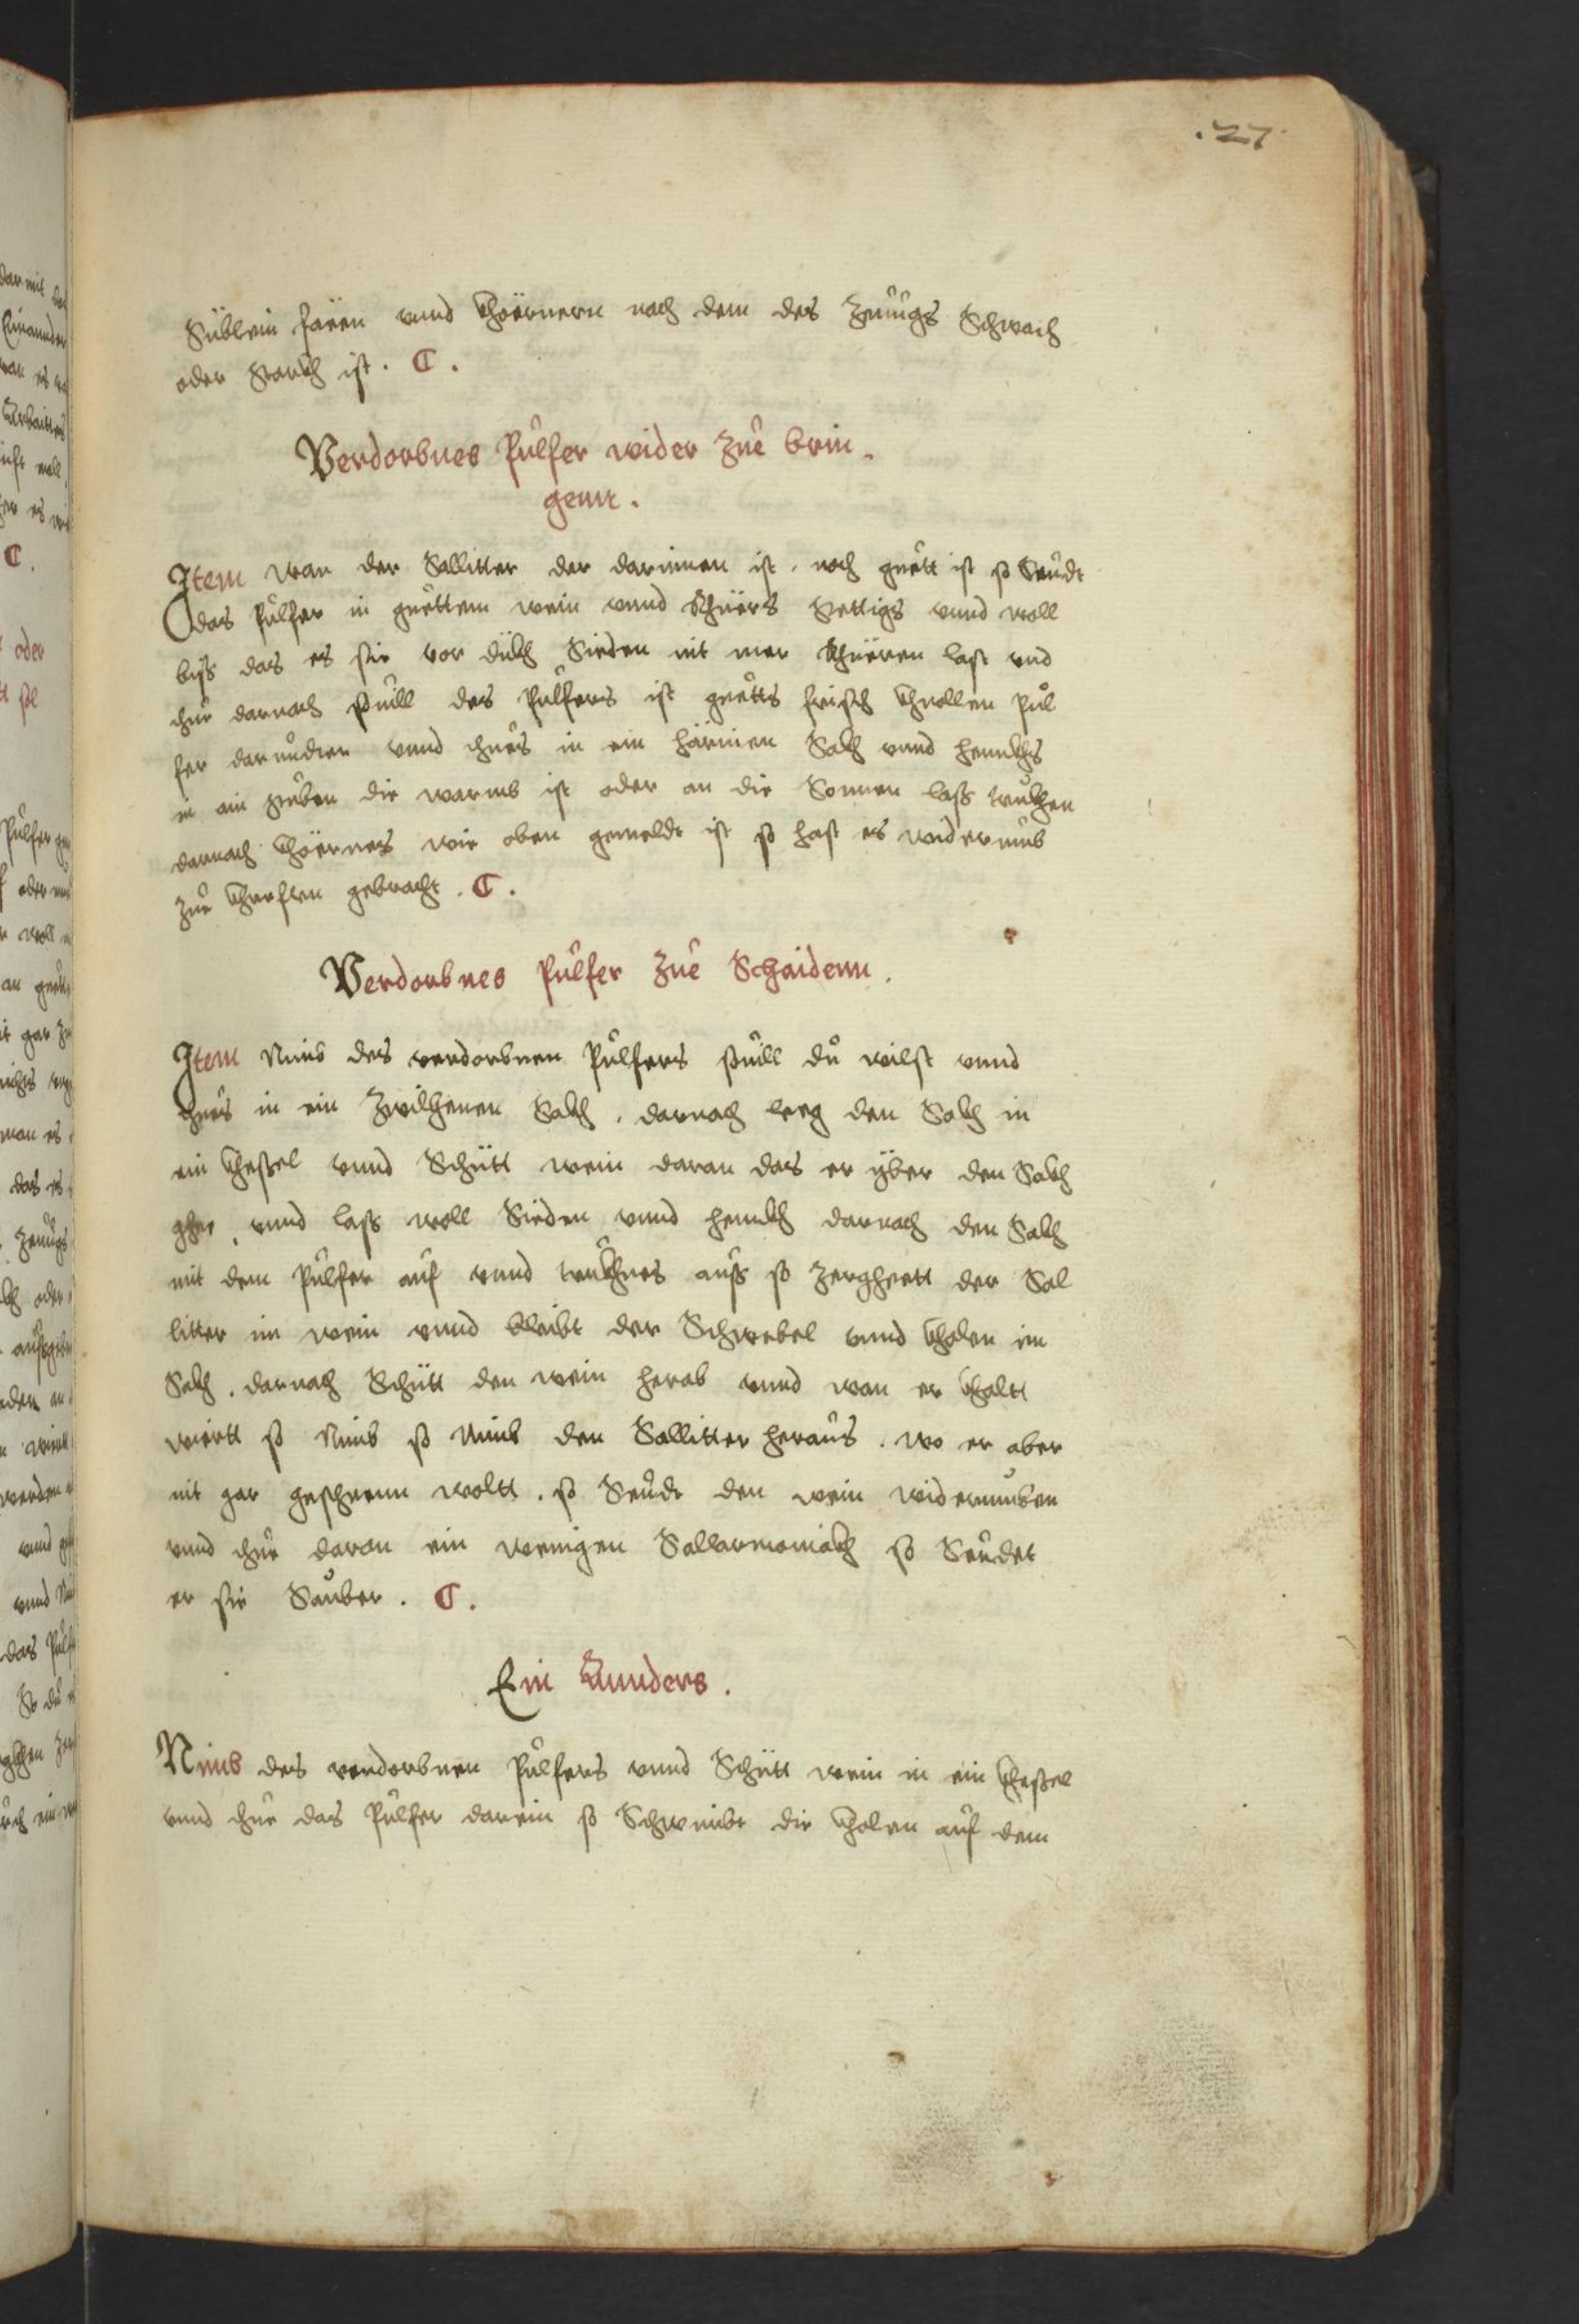 .27.
Süblein fären vnnd Khörnern nach dem des Zeuugs Schwach
oder starckh ist . C .
Verdorbnes Pulfer wider zue brin-
genn .
Item wan der Sallitter der darinnen ist . noch guett ist so seudt
das Pulfer in guettem wein vnnd Rhüers stettigs vnnd woll
biss das es sie vor dickh Sieden nit mer Rhüeren last vnd
thue darnach souill des Pulfers ist guetts frisch Khnollen Pul
fer darundter vnnd thues in ein härinen Sackh vnnd hennckhs
in ain stuben die warmb ist oder an die Sonnen lass truckhen
darnach Khörners wie oben gemeldt ist so hast es widerumb
zue Khrefften gebracht . C .
Verdorbnes Pulfer zue Schaidenn .
Item Nimb des verdorbnen Pulfers souill du wilst vnnd
thues in ein Zwilhenen Sackh . darnach leeg den Sackh in
ein Khessel vnnd Schütt wein daran das er yber den Sackh
ghee , vnnd lass woll Sieden vnnd hennckh darnach den Sackh
mit dem Pulfer auf vnnd truckhnes auss so Zergheett der Sal
litter im wein vnnd bleibt der Schwebel vnnd Kholen im
Sackh . darnach Schütt den wein herab vnnd wan er Khaltt
wiertt so Nimb so Nimb den Sallitter heraus . wo er aber
nit gar geschenn woltt . so Seudt den wein widerumben
vnnd thue daran ein wenigen Sallarmoniackh so Seudet
er sie Sauber . C .
Ein Annders .
Nimb des verdorbnen Pulfers vnnd Schütt wein in ein Khessel
vnnd thue das Pulfer darein so Schwimbt die Kholen auf dem